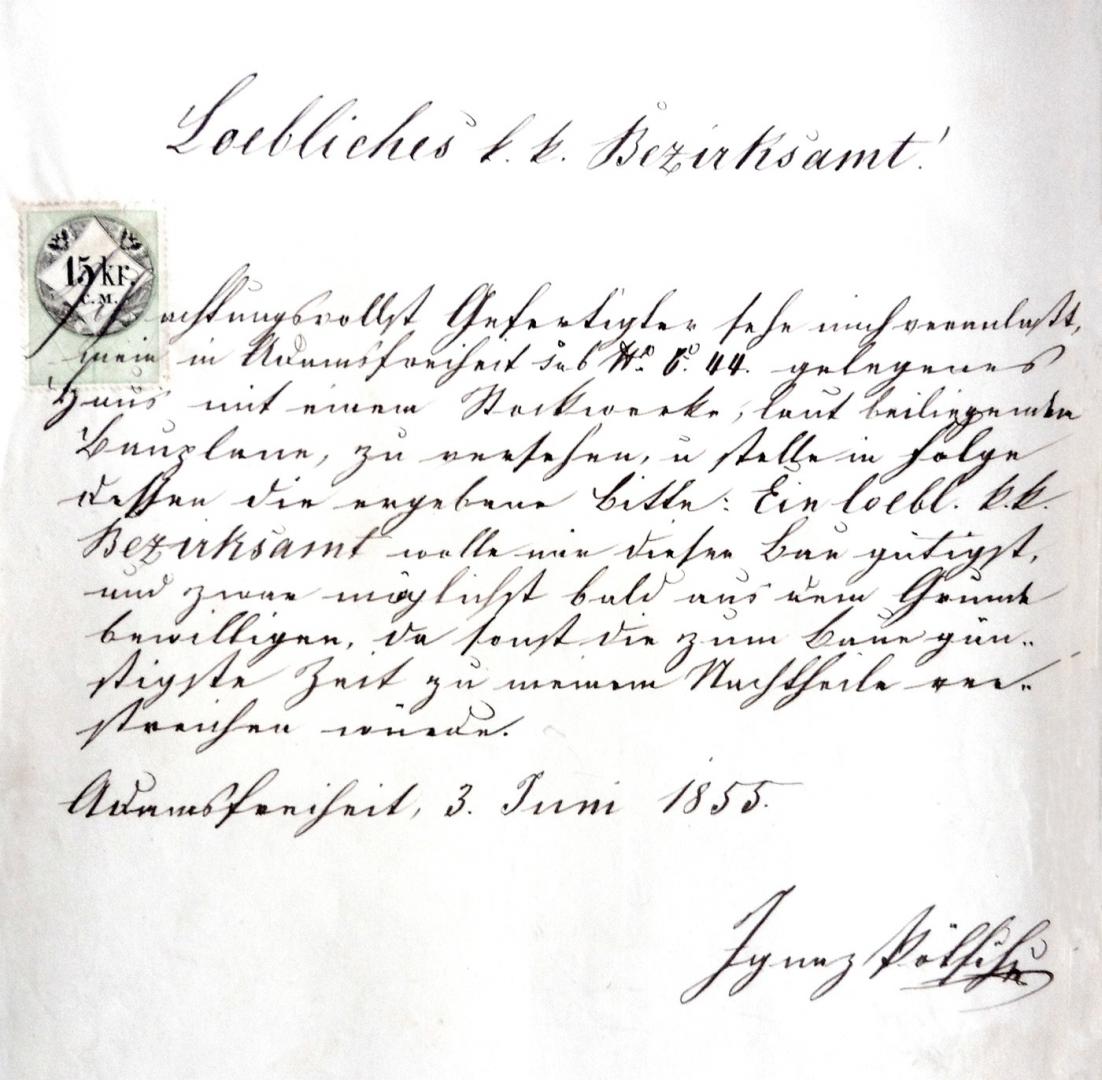 Loebliches k. k. Bezirksamt!
15 kr.
C. M.
Hochachtungsvollst Gefertigter sehe mich veranlaßt,
mein in Adamsfreiheit sub N. C. 44. gelegenes
Haus mit einem Stockwerke, laut beiliegendem
Bauplane, zu versehen, u stelle in Folge
dessen die ergebene Bitte: Ein loebl. k. k.
Bezirksamt wolle mir diesen Bau gütigst,
und zwar möglichst bald aus dem Grunde
bewilligen, da sonst die zum Baue gün-
stigste Zeit zu meinem Nachtheile ver-
streichen würde.
Adamsfreiheit, 3. Juni 1855.
Ignaz